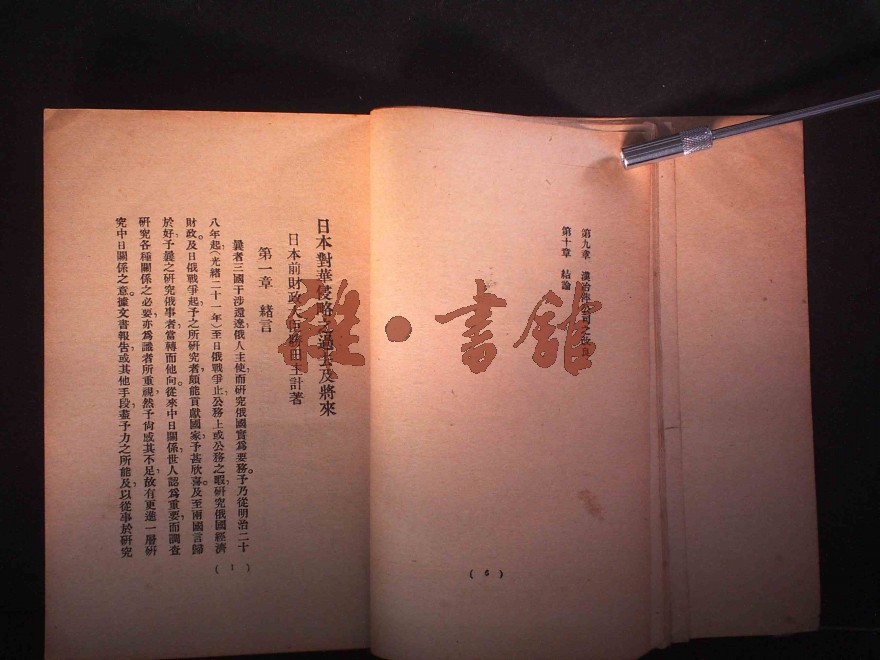 第九章 漢冶萍公司之改良
第十章 結論
( 6 )
日本對華侵略之過去及將來
日本前財政大臣勝田主計著
第一章 緒言
曩者三國干涉還遼俄人主使而研究俄國實爲要務。予乃從明治二十
八年起(光緒二十一年)至日俄戰爭止公務上或公務之暇，研究俄國經濟
財政。及日俄戰爭起，予之所研究者，頗能貢獻國家，予甚欣喜。及至兩國言歸
於好，予曩之研究俄事者，當轉而他向。從來中日關係，世人認爲重要，而調查
研究各種關係之必要，亦爲識者所重視，然予尙或其不足，故有更進一層研
究中日關係之意。據文書報告，或其他手段，盡予力之所能及，以從事於研究
( 1 )
雅·書館